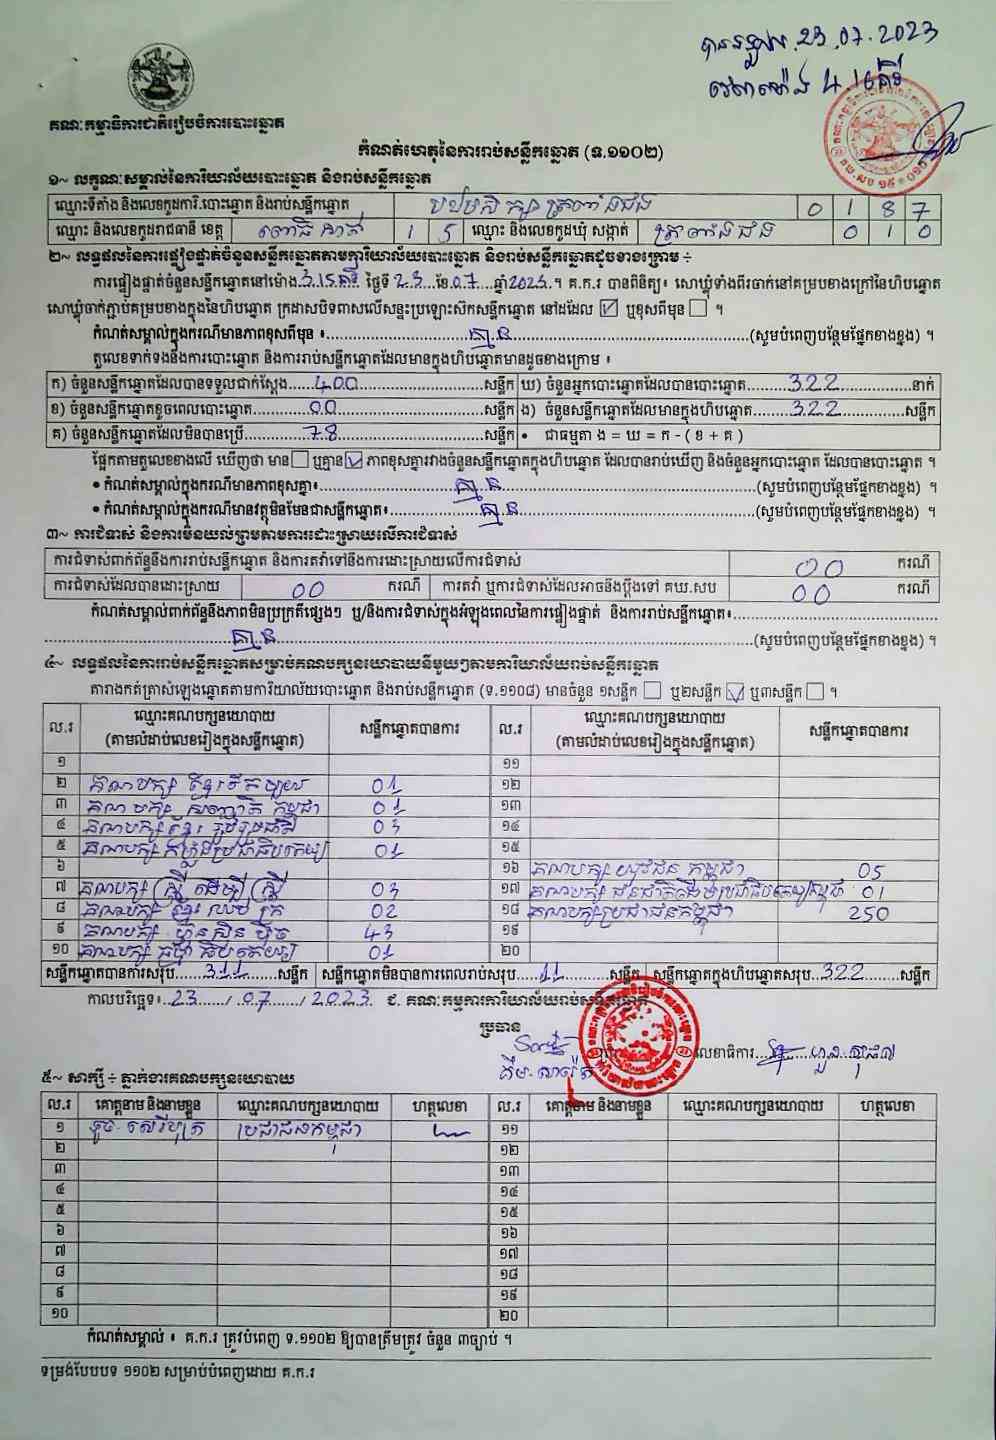 បានទទួល.23.07.2023
វេលាម៉ោង 4.
គណៈកម្មាធិការជាតិរៀបចំការបោះឆ្នោត
កំណត់ហេតុនៃការរាប់សន្លឹកឆ្នោត (ទ.១១០២)
១~ លក្ខណៈសម្គាល់នៃការិយាល័យបោះឆ្នោត និងរាប់សន្លឹកឆ្នោត
ឈ្មោះទីតាំង និងលេខកូដការិ.បោះឆ្នោត និងរាប់សន្លឹកឆ្នោត បឋមសិក្សា ត្រពាំងជង 0 1 8 7
ឈ្មោះ និងលេខកូដរាជធានី ខេត្ត ពោធិ៍សាត់ 1 5 ឈ្មោះ និងលេខកូដឃុំ សង្កាត់ ត្រពាំងជង 0 1 0
២~ លទ្ធផលនៃការផ្ទៀងផ្ទាត់ចំនួនសន្លឹកឆ្នោតតាមការិយាល័យបោះឆ្នោត និងរាប់សន្លឹកឆ្នោតដូចខាងក្រោម ÷
ការផ្ទៀងផ្ទាត់ចំនួនសន្លឹកឆ្នោតនៅម៉ោង 3.15នាទី ថ្ងៃទី 23 ខែ 07 ឆ្នាំ 2023 ។ គ.ក.រ បានពិនិត្យ៖ សោឃ្លុំទាំងពីរចាក់នៅគម្របខាងក្រៅនៃហិបឆ្នោត
សោឃ្លុំចាក់ភ្ជាប់គម្របខាងក្នុងនៃហិបឆ្នោត ក្រដាសបិទពាសលើសន្ទះប្រឡោះស៊កសន្លឹកឆ្នោត នៅដដែល ☑ ឬខុសពីមុន ☐ ។
កំណត់សម្គាល់ក្នុងករណីមានភាពខុសពីមុន ៖ គ្មាន (សូមបំពេញបន្ថែមផ្នែកខាងខ្នង) ។
តួលេខទាក់ទងនឹងការបោះឆ្នោត និងការរាប់សន្លឹកឆ្នោតដែលមានក្នុងហិបឆ្នោតមានដូចខាងក្រោម ៖
ក) ចំនួនសន្លឹកឆ្នោតដែលបានទទួលជាក់ស្តែង 400 សន្លឹក ឃ) ចំនួនអ្នកបោះឆ្នោតដែលបានបោះឆ្នោត 322 នាក់
ខ) ចំនួនសន្លឹកឆ្នោតខូចពេលបោះឆ្នោត 00 សន្លឹក ង) ចំនួនសន្លឹកឆ្នោតដែលមានក្នុងហិបឆ្នោត 322 សន្លឹក
គ) ចំនួនសន្លឹកឆ្នោតដែលមិនបានប្រើ 78 សន្លឹក • ជាធម្មតា ង = ឃ = ក - ( ខ + គ )
ផ្អែកតាមតួលេខខាងលើ ឃើញថា មាន ☐ ឬគ្មាន ☑ ភាពខុសគ្នារវាងចំនួនសន្លឹកឆ្នោតក្នុងហិបឆ្នោត ដែលបានរាប់ឃើញ និងចំនួនអ្នកបោះឆ្នោត ដែលបានបោះឆ្នោត ។
• កំណត់សម្គាល់ក្នុងករណីមានភាពខុសគ្នា៖ គ្មាន (សូមបំពេញបន្ថែមផ្នែកខាងខ្នង) ។
• កំណត់សម្គាល់ក្នុងករណីមានវត្ថុមិនមែនជាសន្លឹកឆ្នោត៖ គ្មាន (សូមបំពេញបន្ថែមផ្នែកខាងខ្នង) ។
៣~ ការជំទាស់ និងការមិនយល់ព្រមតាមការដោះស្រាយលើការជំទាស់
ការជំទាស់ពាក់ព័ន្ធនឹងការរាប់សន្លឹកឆ្នោត និងការតវ៉ាទៅនឹងការដោះស្រាយលើការជំទាស់ 00 ករណី
ការជំទាស់ដែលបានដោះស្រាយ 00 ករណី ការតវ៉ា ឬការជំទាស់ដែលអាចនឹងប្តឹងទៅ គឃ.សប 00 ករណី
កំណត់សម្គាល់ពាក់ព័ន្ធនឹងភាពមិនប្រក្រតីផ្សេងៗ ឬ/និងការជំទាស់ក្នុងអំឡុងពេលនៃការផ្ទៀងផ្ទាត់ និងការរាប់សន្លឹកឆ្នោត៖
គ្មាន (សូមបំពេញបន្ថែមផ្នែកខាងខ្នង) ។
៤~ លទ្ធផលនៃការរាប់សន្លឹកឆ្នោតសម្រាប់គណបក្សនយោបាយនីមួយៗតាមការិយាល័យរាប់សន្លឹកឆ្នោត
តារាងកត់ត្រាសំឡេងឆ្នោតតាមការិយាល័យបោះឆ្នោត និងរាប់សន្លឹកឆ្នោត (ទ.១១០៨) មានចំនួន ១សន្លឹក ☐ ឬ២សន្លឹក ☑ ឬ៣សន្លឹក ☐ ។
ល.រ ឈ្មោះគណបក្សនយោបាយ (តាមលំដាប់លេខរៀងក្នុងសន្លឹកឆ្នោត) សន្លឹកឆ្នោតបានការ ល.រ ឈ្មោះគណបក្សនយោបាយ (តាមលំដាប់លេខរៀងក្នុងសន្លឹកឆ្នោត) សន្លឹកឆ្នោតបានការ
១ ១១
២ គណបក្ស ខ្មែរ 01 ១២
៣ គណបក្ស សញ្ជាតិ កម្ពុជា 01 ១៣
៤ គណបក្ស ខ្មែរ រួបរួមជាតិ 03 ១៤
៥ គណបក្ស កម្លាំងប្រជាធិបតេយ្យ 01 ១៥
៦ ១៦ គណបក្ស យុវជន កម្ពុជា 05
៧ គណបក្ស ស្ត្រី ដើម្បី ស្ត្រី 03 ១៧ គណបក្ស ជនជាតិដើមប្រជាធិបតេយ្យកម្ពុជា 01
៨ គណបក្ស ខ្មែរ ឈប់ ក្រ 02 ១៨ គណបក្សប្រជាជនកម្ពុជា 250
៩ គណបក្ស ហ្វ៊ុនស៊ិនប៉ិច 43 ១៩
១០ គណបក្ស ធម្មាធិបតេយ្យ 01 ២០
សន្លឹកឆ្នោតបានការសរុប 311 សន្លឹក សន្លឹកឆ្នោតមិនបានការពេលរាប់សរុប 11 សន្លឹក សន្លឹកឆ្នោតក្នុងហិបឆ្នោតសរុប 322 សន្លឹក
កាលបរិច្ឆេទ៖ 23 / 07 / 2023 ជ. គណៈកម្មការការិយាល័យរាប់សន្លឹកឆ្នោត
ប្រធាន
លេខាធិការ
៥~ សាក្សី ÷ ភ្នាក់ងារគណបក្សនយោបាយ
ល.រ គោត្តនាម និងនាមខ្លួន ឈ្មោះគណបក្សនយោបាយ ហត្ថលេខា ល.រ គោត្តនាម និងនាមខ្លួន ឈ្មោះគណបក្សនយោបាយ ហត្ថលេខា
១ ប្រជាជនកម្ពុជា ១១
២ ១២
៣ ១៣
៤ ១៤
៥ ១៥
៦ ១៦
៧ ១៧
៨ ១៨
៩ ១៩
១០ ២០
កំណត់សម្គាល់ ៖ គ.ក.រ ត្រូវបំពេញ ទ.១១០២ ឱ្យបានត្រឹមត្រូវ ចំនួន ៣ច្បាប់ ។
ទម្រង់បែបបទ ១១០២ សម្រាប់បំពេញដោយ គ.ក.រ